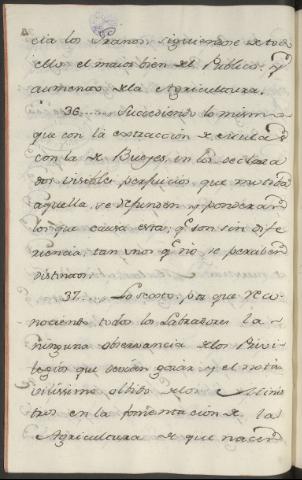 cia los Granos, siguiendose de todo
ello el maior bien del Publico, y
aumento de la Agricultura.
36.... Sucediendo lo mismo
que con la extraccion de
con la de Bueyes, en los declara
dos visibles perjuicios que metida
aquella, se difunden, y ponderan
los que causa esta, qe. son sin dife
rencia, tan unos qe. no se perciben
distintos.
37. Lo sexto: por que reco
nociendo todos los Labradores la
ninguna observancia de los Privi
legios que devian gozar, y el nota
vilissimo olbido de los Minis
tros en la fomentacion de la
Agricultura de que nacen